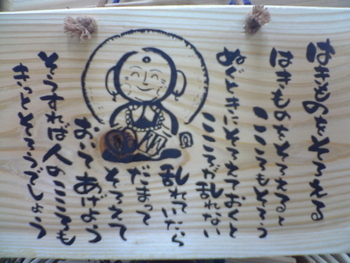 はきものをそろえる
はきものをそろえると
こころもそろう
ぬぐときにそろえておくと
こころがみだれない
乱れていたら
だまって
そろえて
おいてあげよう
そうすれば人のこころも
きっとそろうでしょう